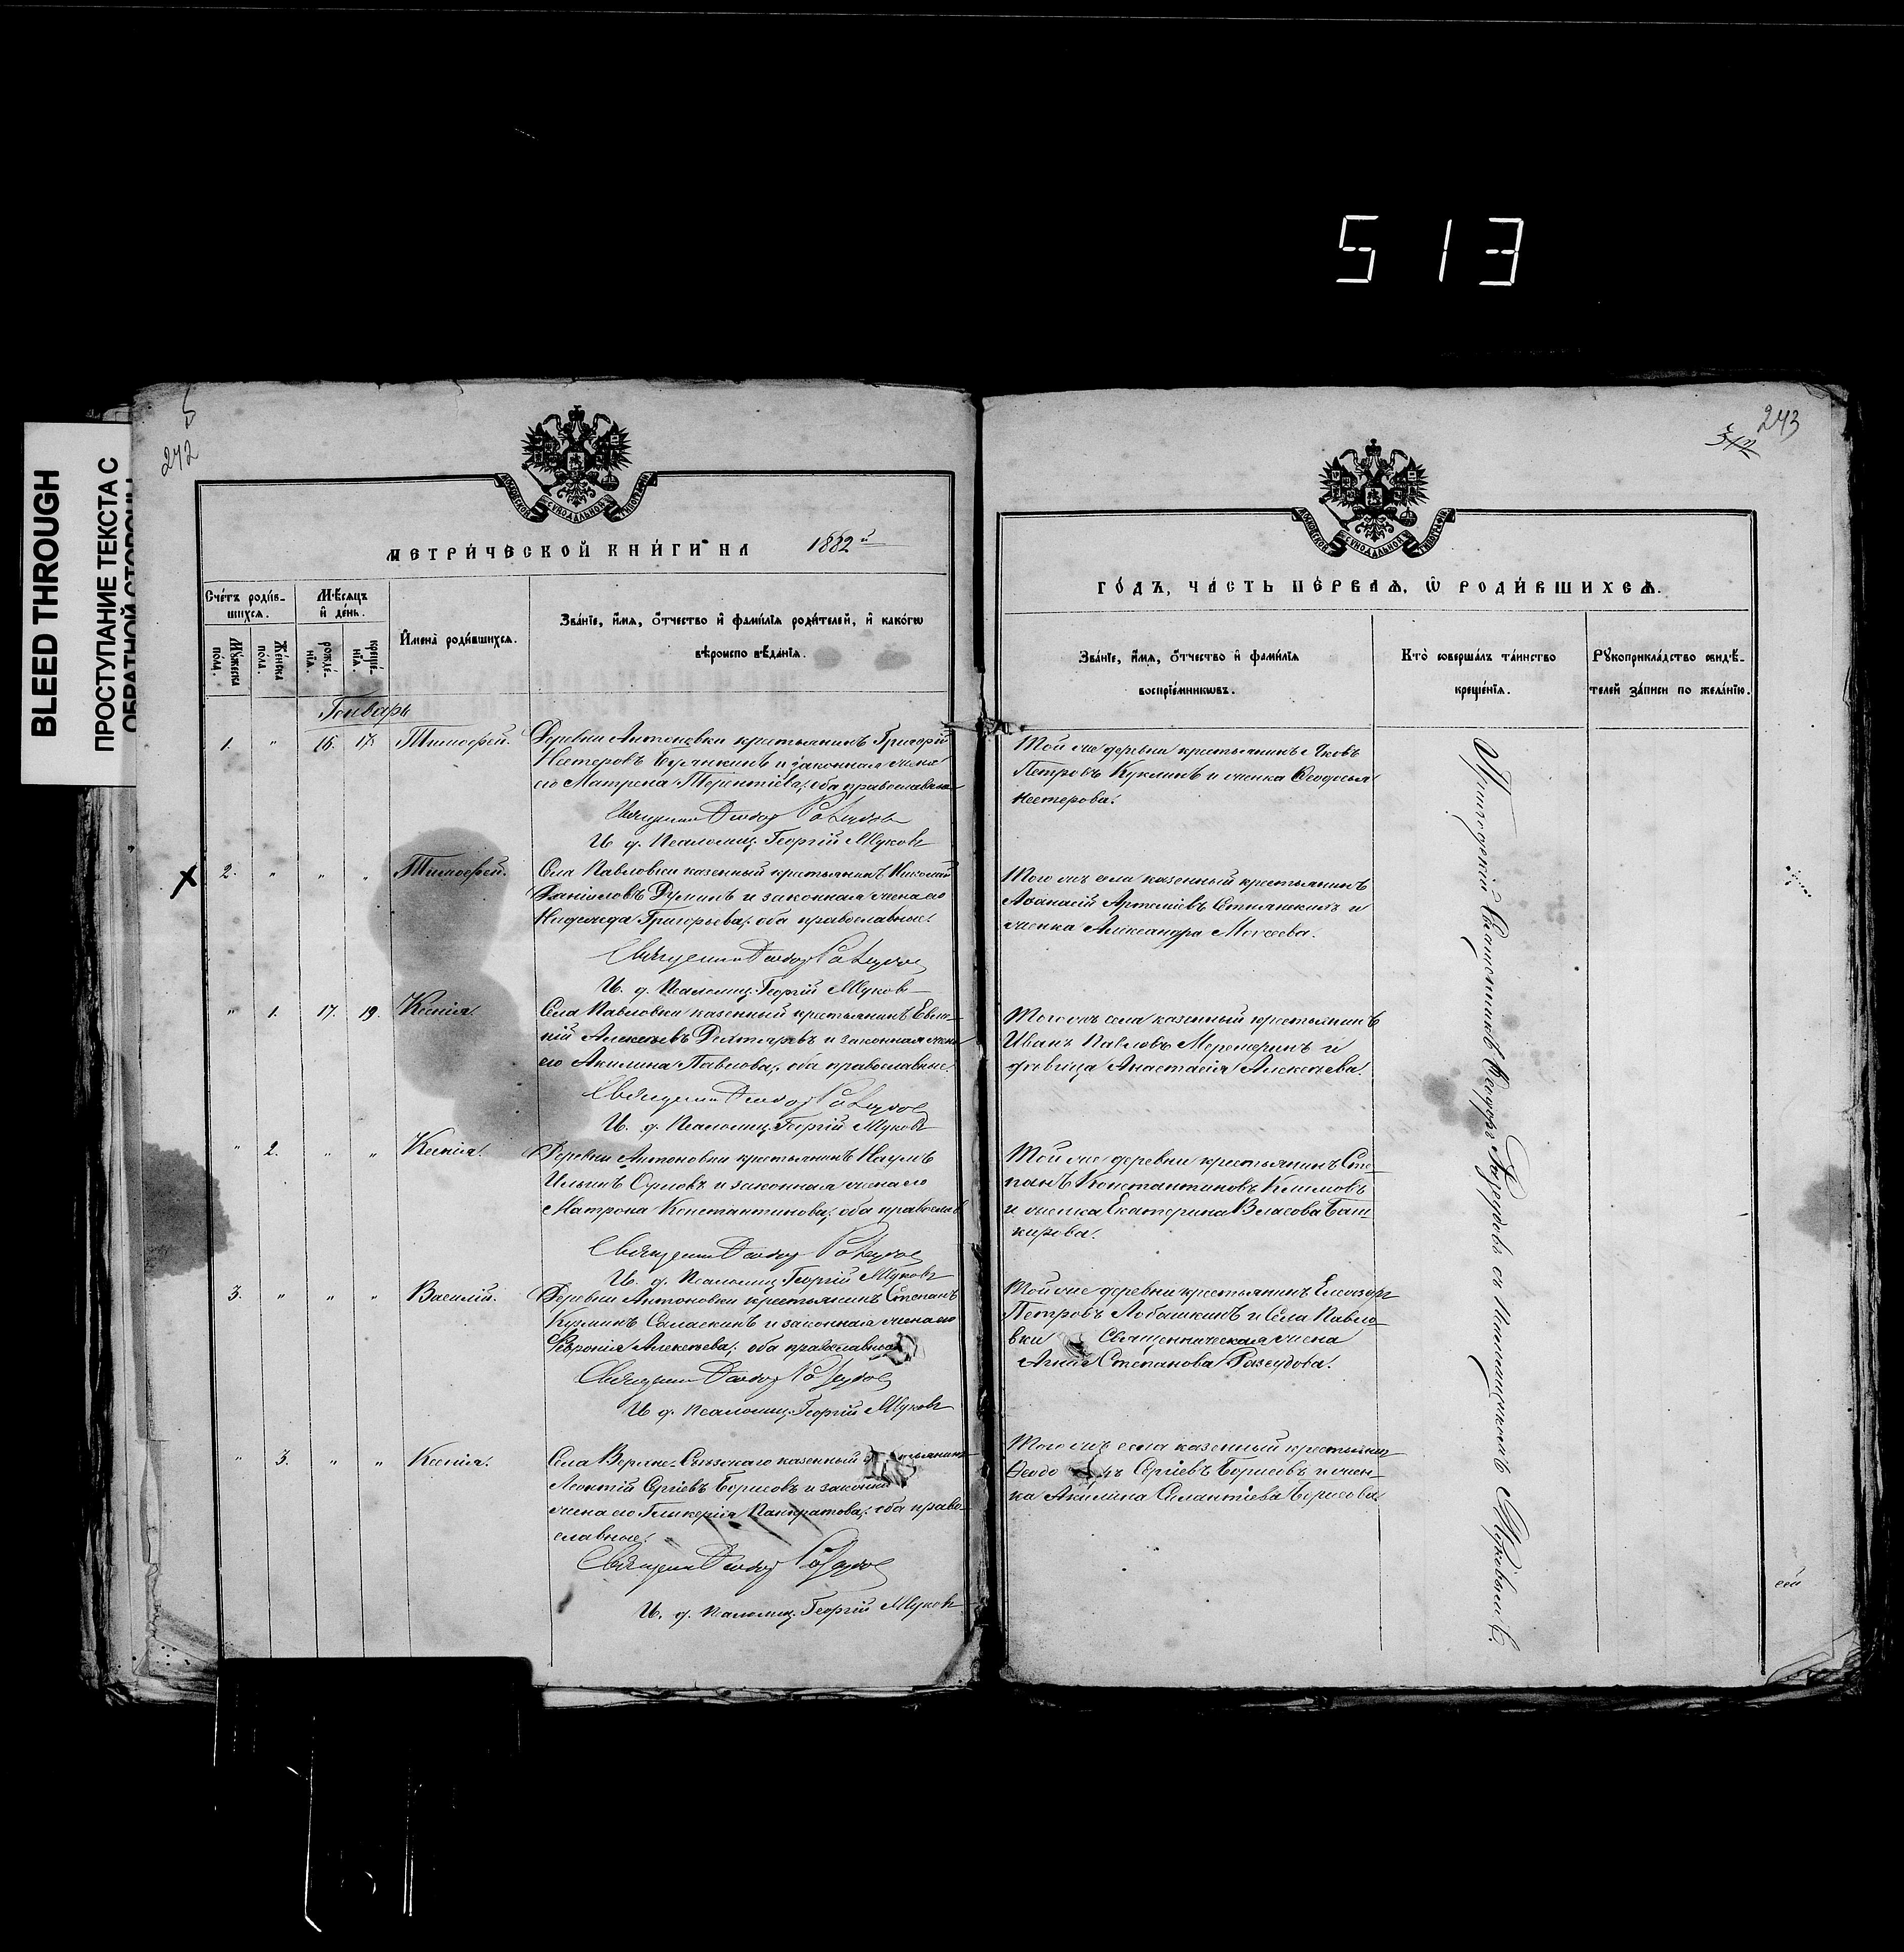 513
BLEED THROUGH
ПРОСТУПАНИЕ ТЕКСТА С
ОБРАТНОЙ СТОРОНЫ
5
242
МЕТРИЧЕСКОЙ КНИГИ НА 1882й
Счётъ родившихся.
Мужеска пола.
Женска пола.
Мѣсяцъ и день.
рожденія.
крещенія.
Имена родившихся.
Званіе, имя, отчество и фамилія родителей, и какого
вѣроисповѣданія.
Генварь
1. " 16. 17. Тимофей. Деревни Антоновки крестьянинъ Григорій
Нестеровъ и законная жена
его Матрона Терентіева; оба православные
Священникъ Ѳеодоръ
И. д. Псаломщ. Георгій Жуковъ
2. " " " Тимофей. Села Павловки казенный крестьянинъ Николай
Даніиловъ Думинъ и законная жена его
Надежда Григорьева; оба православные.
Священникъ Ѳеодоръ
И. д. Псаломщ. Георгій Жуковъ
" 1. 17. 19. Ксенія. Села Павловки казенный крестьянинъ
Алексѣевъ Дехтяревъ и законная жена
его Акилина Павлова; оба православные.
Священникъ Ѳеодоръ
И. д. Псаломщ. Георгій Жуковъ
" 2. " " Ксенія. Деревни Антоновки крестьянинъ Наумъ
Ильинъ Орловъ и законная жена его
Матрона Константинова; оба православ
Священникъ Ѳеодоръ
И. д. Псаломщ. Георгій Жуковъ
3. " " " Василій. Деревни Антоновки крестьянинъ Степанъ
Кузминъ Саласкинъ и законная жена его
Ѳевронія Алексѣева; оба православные
Священникъ Ѳеодоръ
И. д. Псаломщ. Георгій Жуковъ
" 3. " " Ксенія. Села казенный
Леонтій Сергіевъ Борисовъ и законная
жена его Гликерія Панкратова; оба право-
славные.
Священникъ Ѳеодоръ
И. д. Псаломщ. Георгій Жуковъ
243
512
ГОДЪ, ЧАСТЬ ПЕРВАЯ, Ѡ РОДИВШИХСЯ.
Званіе, имя, отчество и фамилія
воспріемниковъ.
Кто совершалъ таинство
крещенія.
Рукоприкладство свидѣ-
телей записи по желанію.
Той же деревни крестьянинъ Яковъ
Петровъ Куклинъ и женка Ѳеодосья
Нестерова.
Того жъ села казенный крестьянинъ
Аѳанасій Артеміевъ и
женка Александра Моисеева.
Того жъ села казенный крестьянинъ
Иванъ Павловъ Мереңеринъ и
дѣвица Анастасія Алексѣева.
Той же деревни крестьянинъ Сте-
панъ Константиновъ Климовъ
и женка Екатерина Власова Баш-
кирова.
Той же деревни крестьянинъ Елеазаръ
Петровъ Лобашкинъ и Села Павло-
вки Священническая жена
Анна Степанова
Того жъ села казенный крестьянинъ
Сергіевъ Борисовъ и жен-
ка Акилина Силантіева Борисова.
Священникъ Ѳеодоръ съ Псаломщикомъ Жуковымъ.